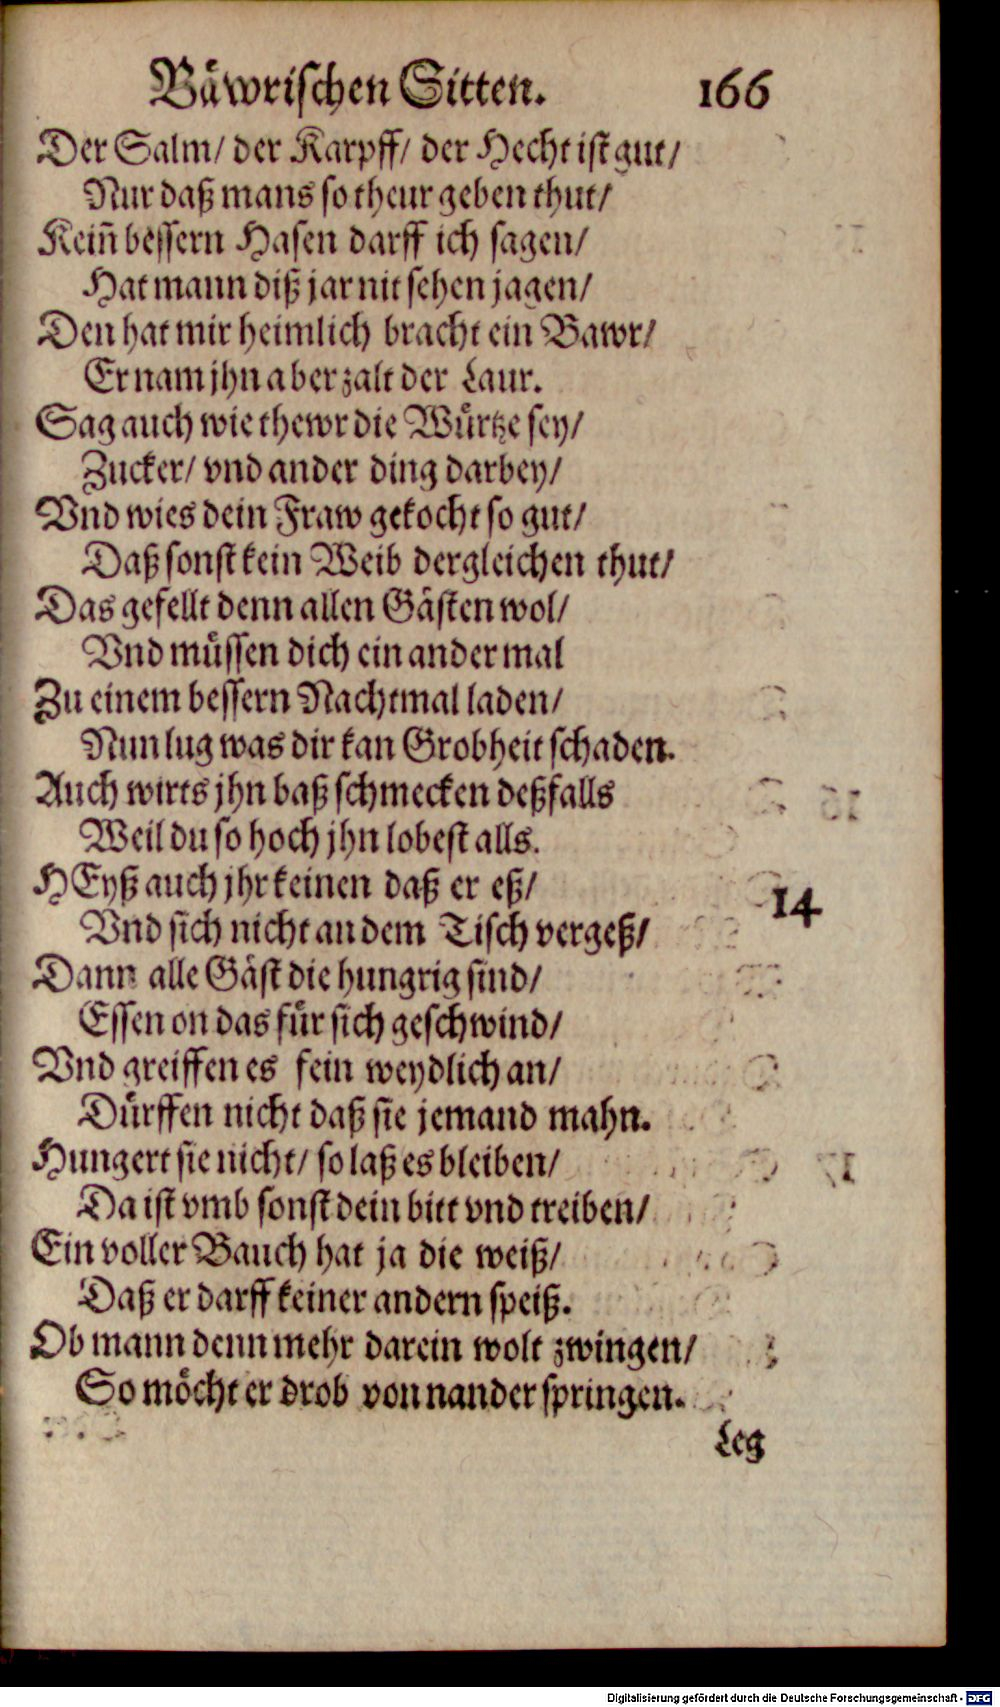 Bäwrischen Sitten. 166
Der Salm/ der Karpff/ der Hecht ist gut/
Nur daß mans so theur geben thut/
Keiñ bessern Hasen darff ich sagen/
Hat mann diß jar nit sehen jagen/
Den hat mir heimlich bracht ein Bawr/
Er nam jhn aber zalt der Laur.
Sag auch wie thewr die Würtze sey/
Zucker/ vnd ander ding darbey/
Vnd wies dein Fraw gekocht so gut/
Daß sonst kein Weib dergleichen thut/
Das gefellt denn allen Gästen wol/
Vnd müssen dich ein ander mal
Zu einem bessern Nachtmal laden/
Nun lug was dir kan Grobheit schaden.
Auch wirts jhn baß schmecken deßfalls
Weil du so hoch jhn lobest alls.
HEyß auch jhr keinen daß er eß/
14
Vnd sich nicht an dem Tisch vergeß/
Dann alle Gäst die hungrig sind/
Essen on das für sich geschwind/
Vnd greiffen es fein weydlich an/
Dürffen nicht daß sie jemand mahn.
Hungert sie nicht/ so laß es bleiben/
Da ist vmb sonst dein bitt vnd treiben/
Ein voller Bauch hat ja die weiß/
Daß er darff keiner andern speiß.
Ob mann denn mehr darein wolt zwingen/
So möcht er drob von nander springen.
Leg
Digitalisierung gefördert durch die Deutsche Forschungsgemeinschaft - DFG